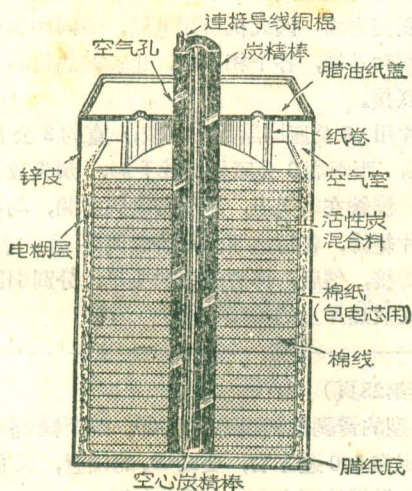 連接导线銅棍
空气孔
炭精棒
腊油纸盖
纸卷
锌皮
空气室
活性炭
混合料
电糊层
棉纸
(包电芯用)
棉线
腊纸底
空心炭精棒